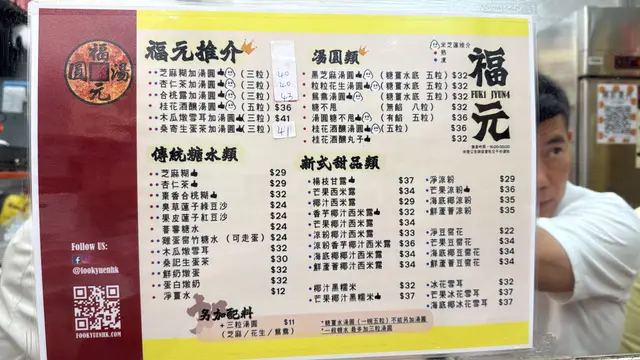 福元湯圓
Follow US:
@fookyuenhk
FOOKYUENHK
福元推介
芝麻糊加湯圓 (三粒) 40
杏仁茶加湯圓 (三粒) 40
合桃露加湯圓 (三粒) 43
桂花酒釀湯圓 (五粒) $36
木瓜燉雪耳加湯圓 (三粒) $41
桑寄生蛋茶加湯圓 (三粒) 41
湯圓類
黑芝麻湯圓 (糖薑水底 五粒) $32
粒粒花生湯圓 (糖薑水底 五粒) $32
鴛鴦湯圓 (糖薑水底 五粒) $32
糖不甩 (無餡 八粒) $32
湯圓糖不甩 (有餡 五粒) $36
桂花酒釀湯圓 (五粒) $36
桂花酒釀丸子 $32
米芝蓮推介
熱
凍
福元
傳統糖水類
芝麻糊 $29
杏仁茶 $29
棗香合桃糊 $32
臭草蓮子綠豆沙 $24
果皮蓮子紅豆沙 $24
蕃薯糖水 $24
雞蛋腐竹糖水 (可走蛋) $24
木瓜燉雪耳 $32
桑記生蛋茶 $30
鮮奶燉蛋 $32
蛋白燉奶 $32
淨薑水 $12
新式甜品類
楊枝甘露 $37
芒果西米露 $34
椰汁西米露 $29
香芋椰汁西米露 $32
芒果椰汁西米露 $34
涼粉椰汁西米露 $33
涼粉香芋椰汁西米露 $36
海底椰椰汁西米露 $34
鮮蘆薈椰汁西米露 $34
椰汁黑糯米 $32
芒果椰汁黑糯米 $37
淨涼粉 $29
芒果涼粉 $36
海底椰涼粉 $35
鮮蘆薈涼粉 $35
淨豆腐花 $22
芒果豆腐花 $34
海底椰豆腐花 $34
鮮蘆薈豆腐花 $34
冰花雪耳 $32
芒果冰花雪耳 $37
海底椰冰花雪耳 $37
另加配料
+ 三粒湯圓 $11
(芝麻/花生/鴛鴦)
*糖薑水湯圓 (一碗五粒) 不能另加湯圓
*一碗糖水 最多加三粒湯圓